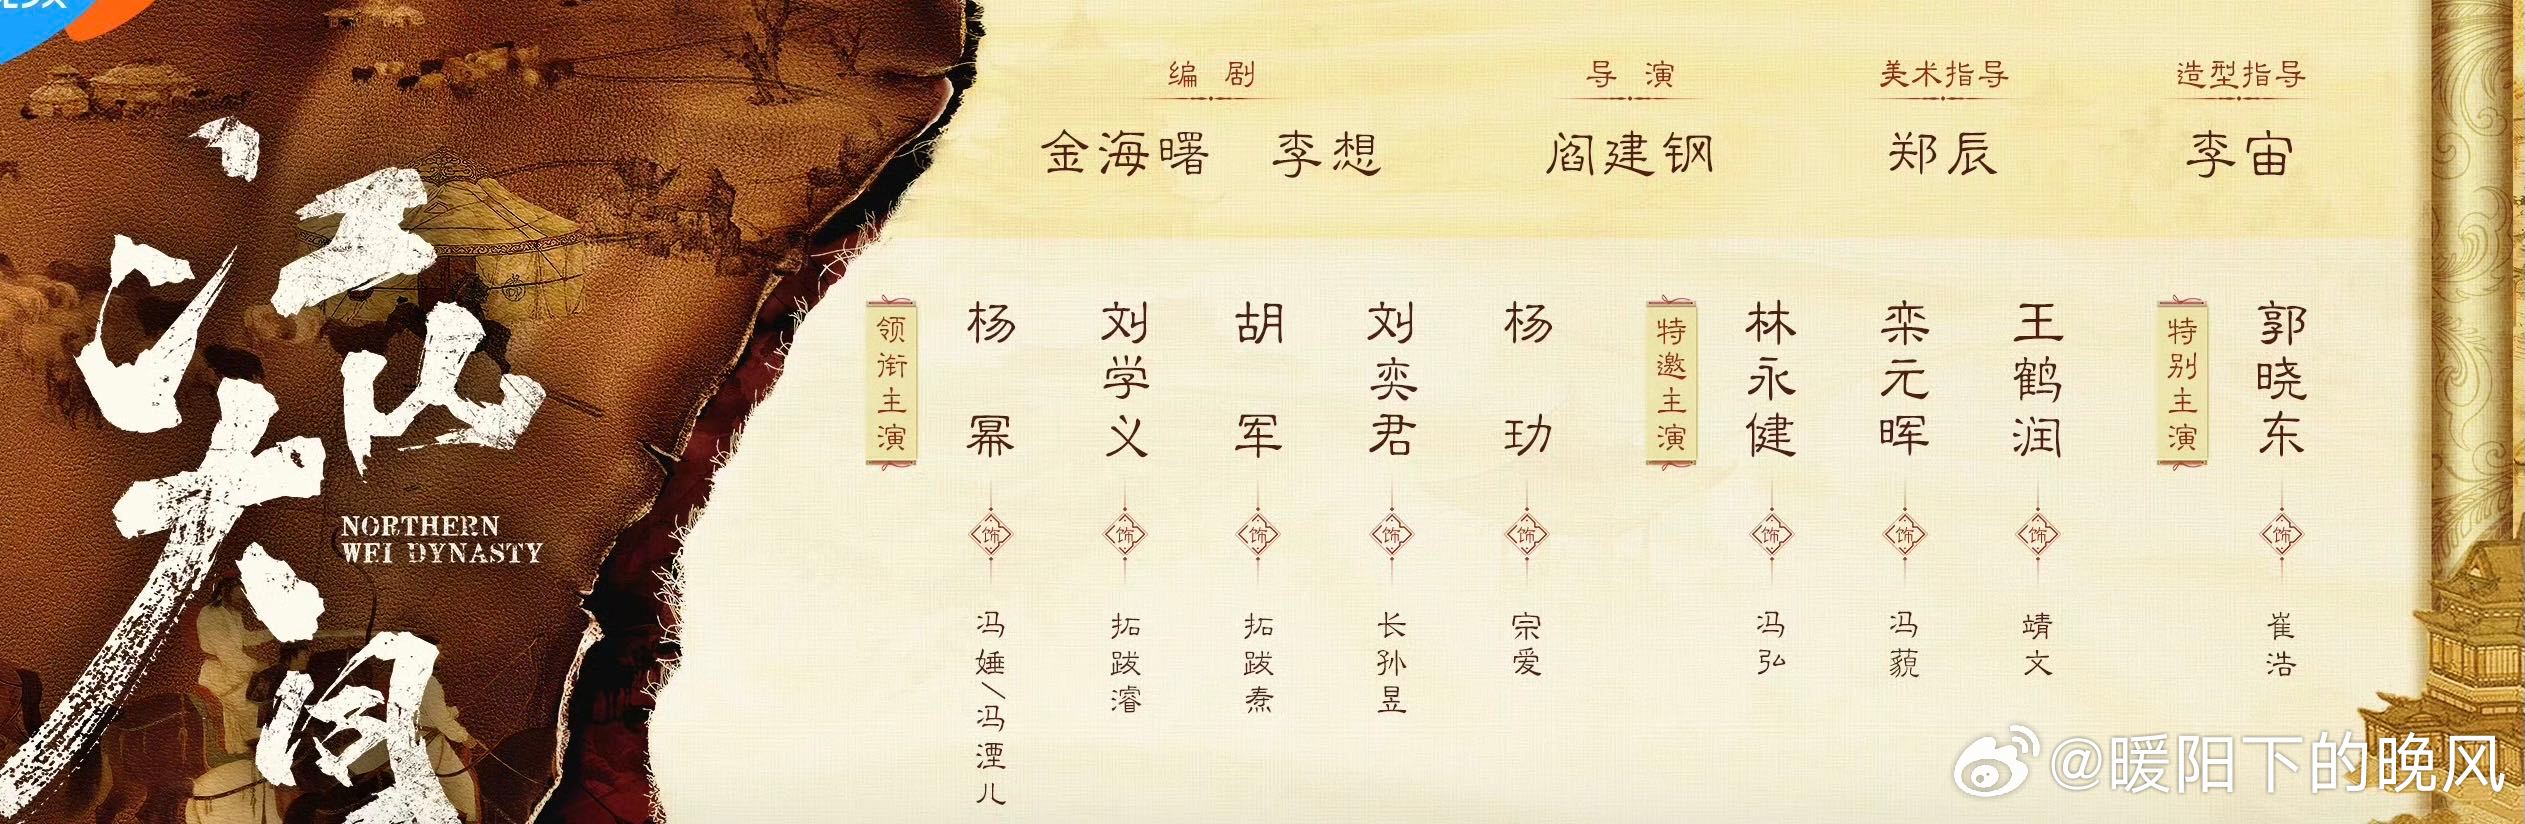 江山大同
NORTHERN
WEI DYNASTY
编剧
金海曙 李想
导演
阎建钢
美术指导
郑辰
造型指导
李宙
领衔主演
杨幂
饰
冯婳/冯湮儿
刘学义
饰
拓跋濬
胡军
饰
拓跋焘
刘奕君
饰
长孙昱
杨玏
饰
宗爱
特邀主演
林永健
饰
冯弘
栾元晖
饰
冯藐
王鹤润
饰
靖文
特别主演
郭晓东
饰
崔浩
@暖阳下的晚风